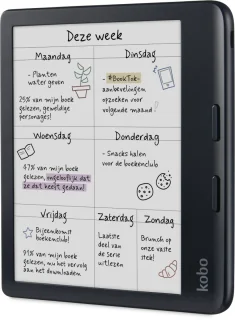 Deze week
Maandag
- Planten
water geven
25% van mijn boek
gelezen, geweldige
personages!
Dinsdag
- #BookTok-
aanbevelingen
opzoeken voor
volgende maand
Woensdag
47% van mijn boek
gelezen, ongelooflijk dat
ze dat heeft gedaan!
Donderdag
- Snacks halen
voor de boekenclub
Vrijdag
Bijeenkomst
boekenclub!
91% van mijn boek
gelezen, nu het vervolg
aan het downloaden
Zaterdag
Laatste
deel van de
serie
uitlezen
Zondag
Brunch op
onze vaste
stek!
kobo